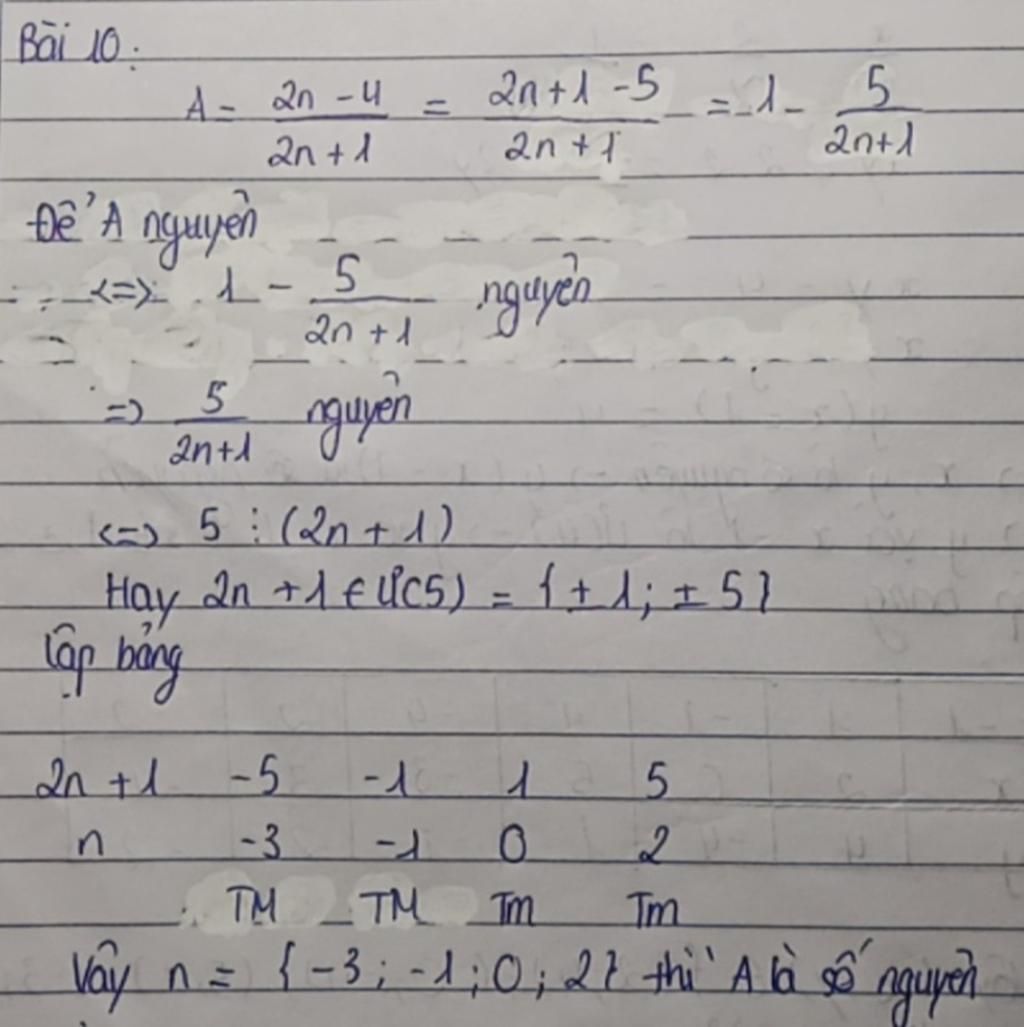 Bài 10:
A = \frac{2n - 4}{2n + 1} = \frac{2n + 1 - 5}{2n + 1} = 1 - \frac{5}{2n+1}
Để A nguyên
<=> 1 - \frac{5}{2n + 1} nguyên
=> \frac{5}{2n+1} nguyên
<=> 5 ⋮ (2n + 1)
Hay 2n + 1 ∈ Ư(5) = {± 1; ± 5}
Lập bảng
2n + 1 -5 -1 1 5
n -3 -1 0 2
TM TM Tm Tm
Vậy n = {-3; -1; 0; 2} thì A là số nguyên